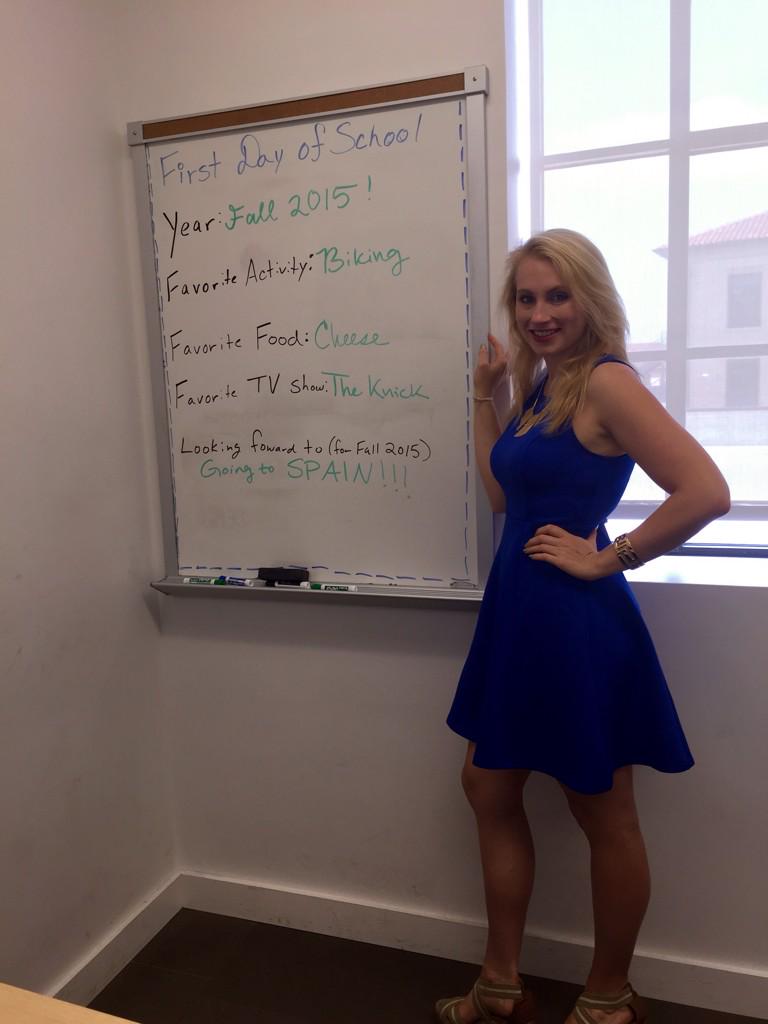 First Day of School
Year: Fall 2015!
Favorite Activity: Biking
Favorite Food: Cheese
Favorite TV Show: The Knick
Looking foward to (for Fall 2015)
Going to SPAIN!!!